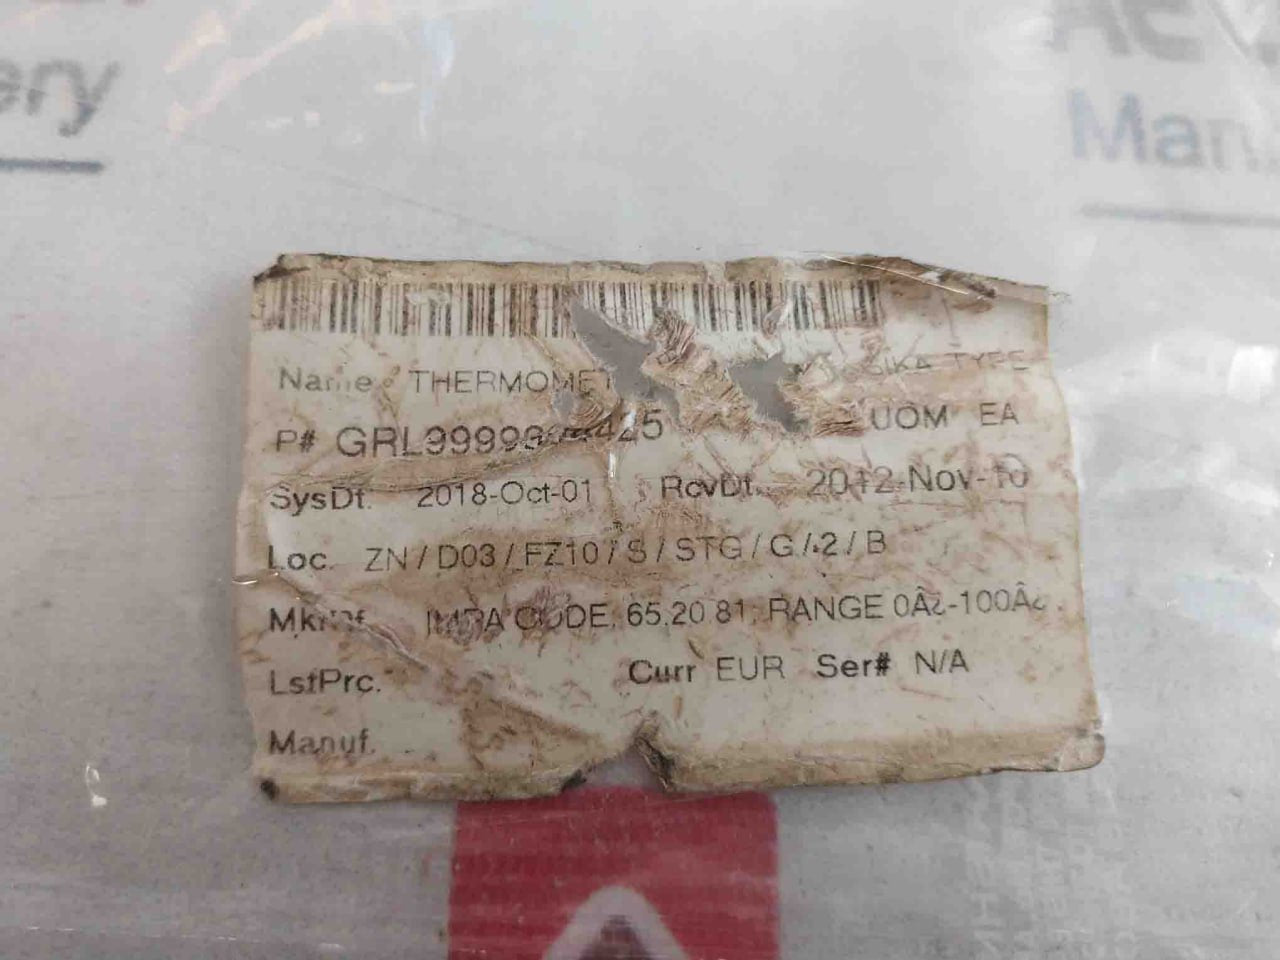 ery
Man
Name THERMOMET SIKA TYPE
P# GRL9999 425 UOM EA
SysDt. 2018-Oct-01 RcvDt. 2012-Nov-10
Loc. ZN / D03 / FZ10 / S / STG / G / 2 / B
MkrRf. IMPA CODE, 65.20 81, RANGE 0Â¿-100Â¿
LstPrc. Curr EUR Ser# N/A
Manuf.